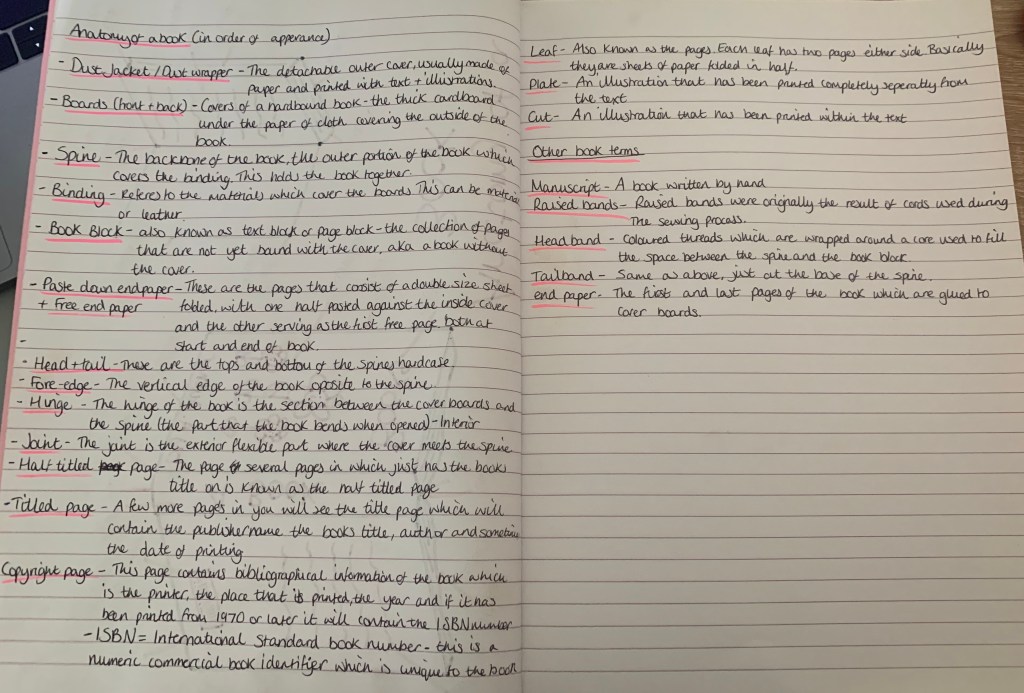 Anatomy of a book (in order of apperance)
- Dust Jacket / Dust wrapper - The detachable outer cover, usually made of
paper and printed with text + illustrations.
- Boards (front + back) - Covers of a hardbound book - the thick cardboard
under the paper of cloth covering the outside of the
book.
- Spine - The backbone of the book, the outer portion of the book which
covers the binding. This holds the book together.
- Binding - Referes to the materials which cover the boards This can be material
or leather.
- Book Block - also known as text block or page block - the collection of pages
that are not yet bound with the cover, aka a book without
the cover.
- Paste down endpaper - These are the pages that consist of a double size sheet
+ Free end paper folded, with one half pasted against the inside cover
and the other serving as the first free page. both at
start and end of book.
-
- Head + tail - These are the tops and bottom of the spines hardcase.
- Fore-edge - The vertical edge of the book oposite to the spine.
- Hinge - The hinge of the book is the section between the cover boards and
the spine (the part that the book bends when opened) - Interior
- Joint - The joint is the exterior flexible part where the cover meets the spine
- Half titled page - The page several pages in which just has the books
title on is known as the half titled page
- Titled page - A few more pages in you will see the title page which will
contain the publisher name the books title, author and sometimes
the date of printing
Copyright page - This page contains bibliographical information of the book which
is the printer, the place that is printed, the year and if it has
been printed from 1970 or later it will contain the ISBN number
- ISBN = International Standard book number - this is a
numeric commercial book identifier which is unique to the book
Leaf - Also known as the pages. Each leaf has two pages either side Basically
they are sheets of paper folded in half.
Plate - An illustration that has been printed completely seperatly from
the text
Cut - An illustration that has been printed within the text
Other book terms
Manuscript - A book written by hand
Raised bands - Raised bands were originally the result of cords used during
The sewing process.
Head band - Coloured threads which are wrapped around a core used to fill
the space between the spine and the book block.
Tailband - Same as above, just at the base of the spine.
end paper - The first and last pages of the book which are glued to
cover boards.